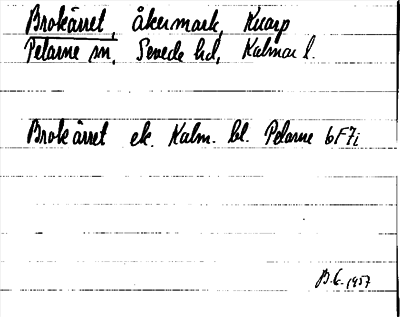 Brokärret, åkermark, Knarp
Pelarne sn, Sevede hd, Kalmar l.
Brokärret ek. Kalm. bl. Pelarne 6F7i
B.G. 1957